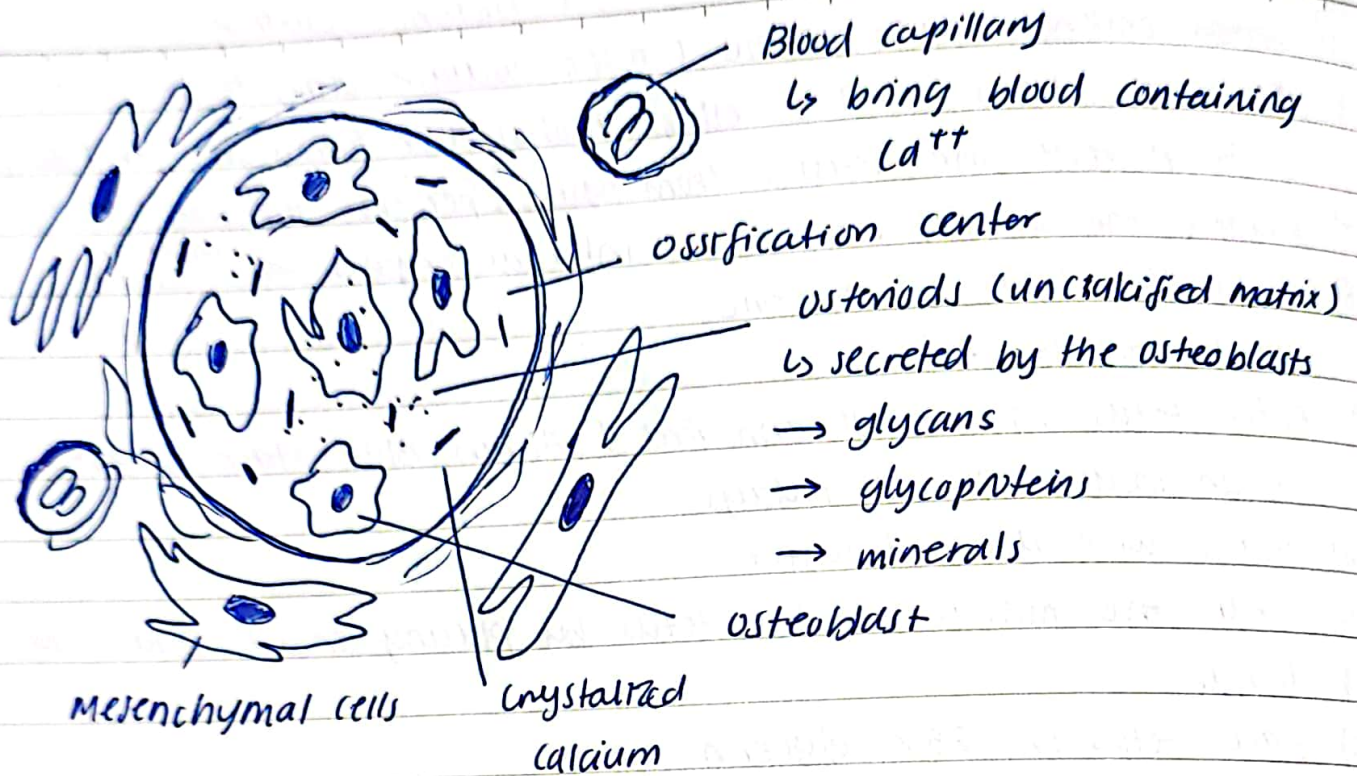 Blood capillary
↳ bring blood containing
Ca⁺⁺
ossification center
osteriods (uncalcified matrix)
↳ secreted by the osteoblasts
→ glycans
→ glycoproteins
→ minerals
osteoblast
Mesenchymal cells
Crystalized
calcium